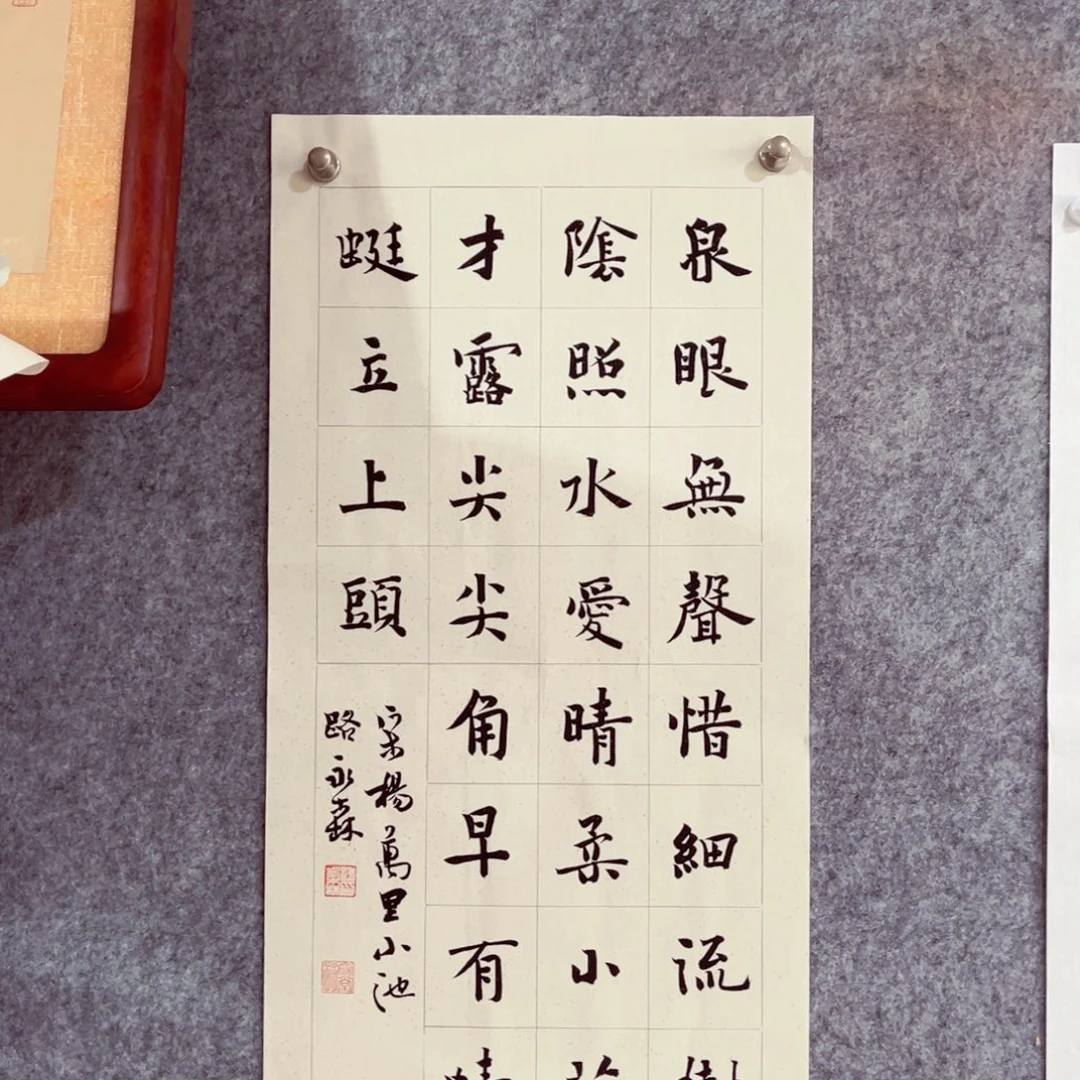 泉眼無聲惜細流
陰照水愛晴柔小
才露尖尖角早有
蜓立上頭
宋楊萬里小池
路永森